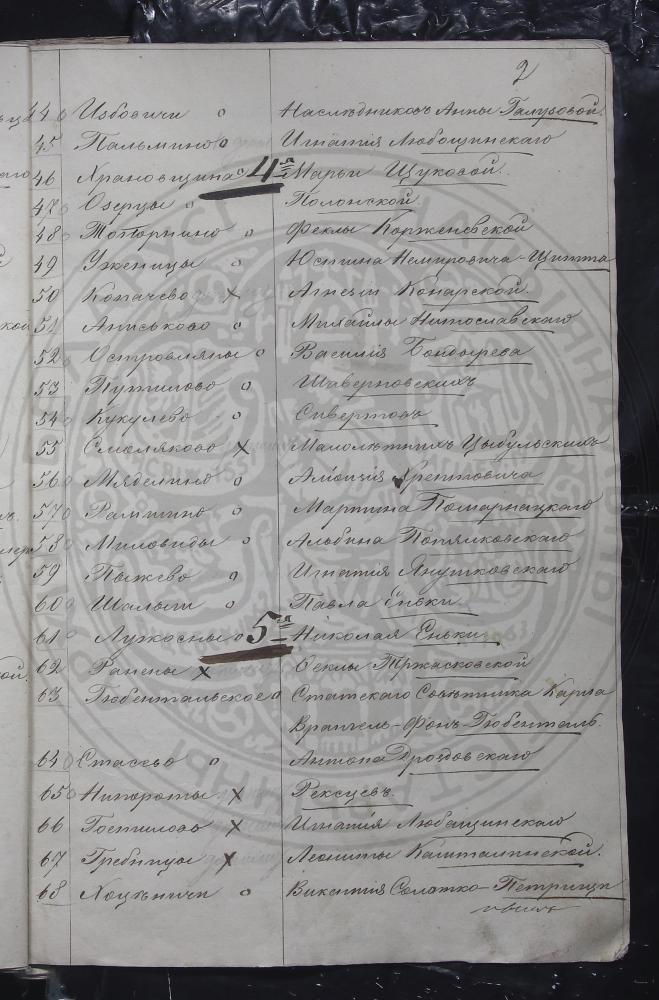 2
44 Избовичи о Наслѣдниковъ Анны Галузовой.
45 Пальмино о Игнатія Любощинскаго
46 Храповщина о 4я Марьи Щукосой.
47 Озерцы о Полонской.
48 Топорнино о Феклы Корженевской
49 Ужницы о Юстина Немировича-Щитта
50 Копачево X Агнеты Конарской.
51 Аниськово о Михайлы Нитославскаго
52 Островляны о Василія Бондырева
53 Путилово о Шаверновскихъ
54 Кукулево о Сивертовъ
55 Смоляково X Малолѣтнихъ Цыбульскихъ
56 Мяделино о Хрептовича
57 Рашпино о Мартина Помарнацкаго
58 Миловиды о Альбина
59 Пыжево о Игнатія Янушковскаго
60 Шалыги о Павла Еньки
61 Лужосны о 5я Николая Еньки
62 Ранены X Ѳеклы Тржасковской
63 Гюбентальское о Статскаго Совѣтника Карла
Врангель-Фонъ-Гюбенталь.
64 Стасево о Антона Дроздовскаго
65 X Рексцевъ.
66 Гостилово X Игнатія Любащинскаго
67 Гребницы X Леониты
68 Хоцѣничи о Викентія Солатко-Петрищи